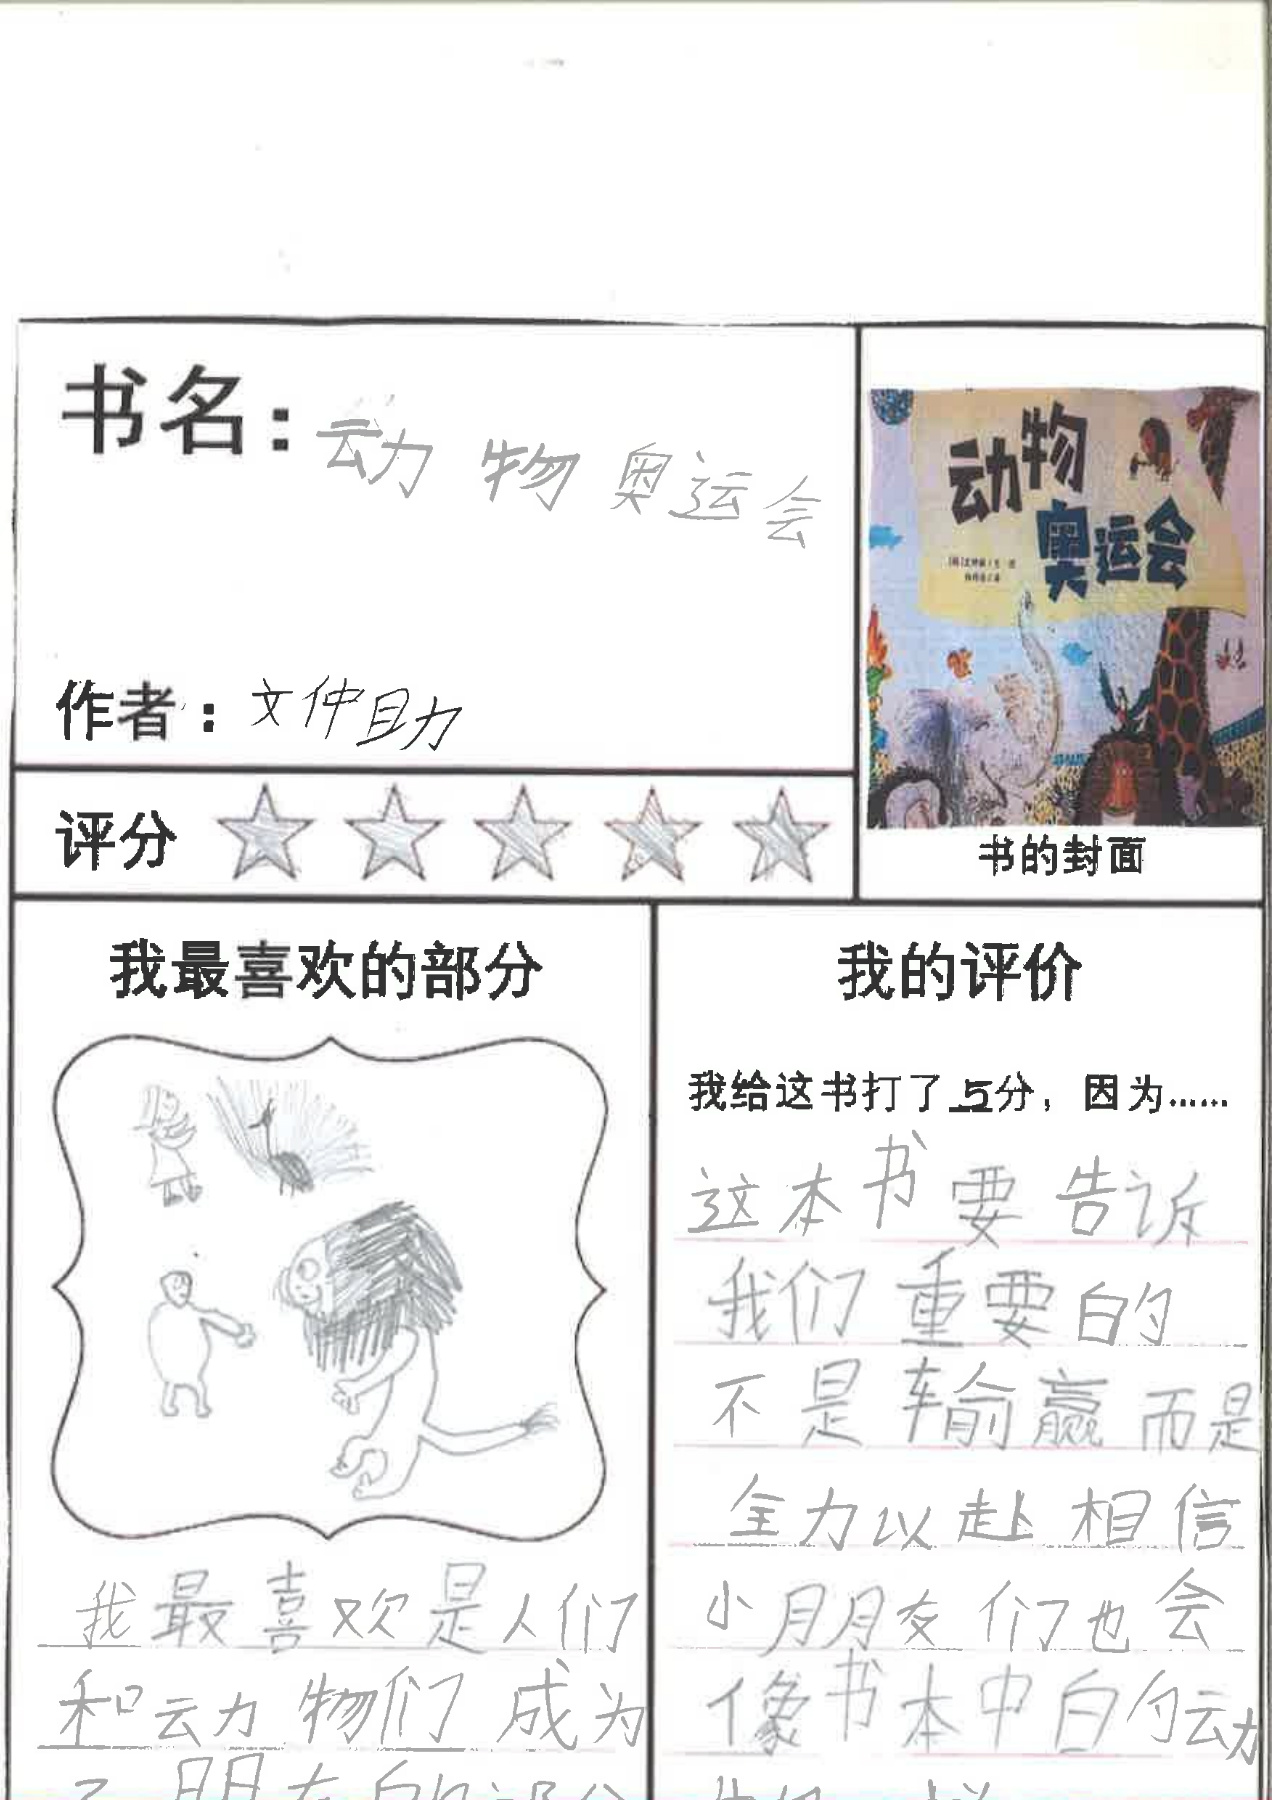 书名：动物奥运会
作者：文仲助
动物
奥运会
评分
书的封面
我最喜欢的部分
我最喜欢是人们
和动物们成为
了朋友的部分
我的评价
我给这书打了5分，因为……
这本书要告诉
我们重要的
不是输赢而是
全力以赴相信
小朋友们也会
像书本中的动
物们一样